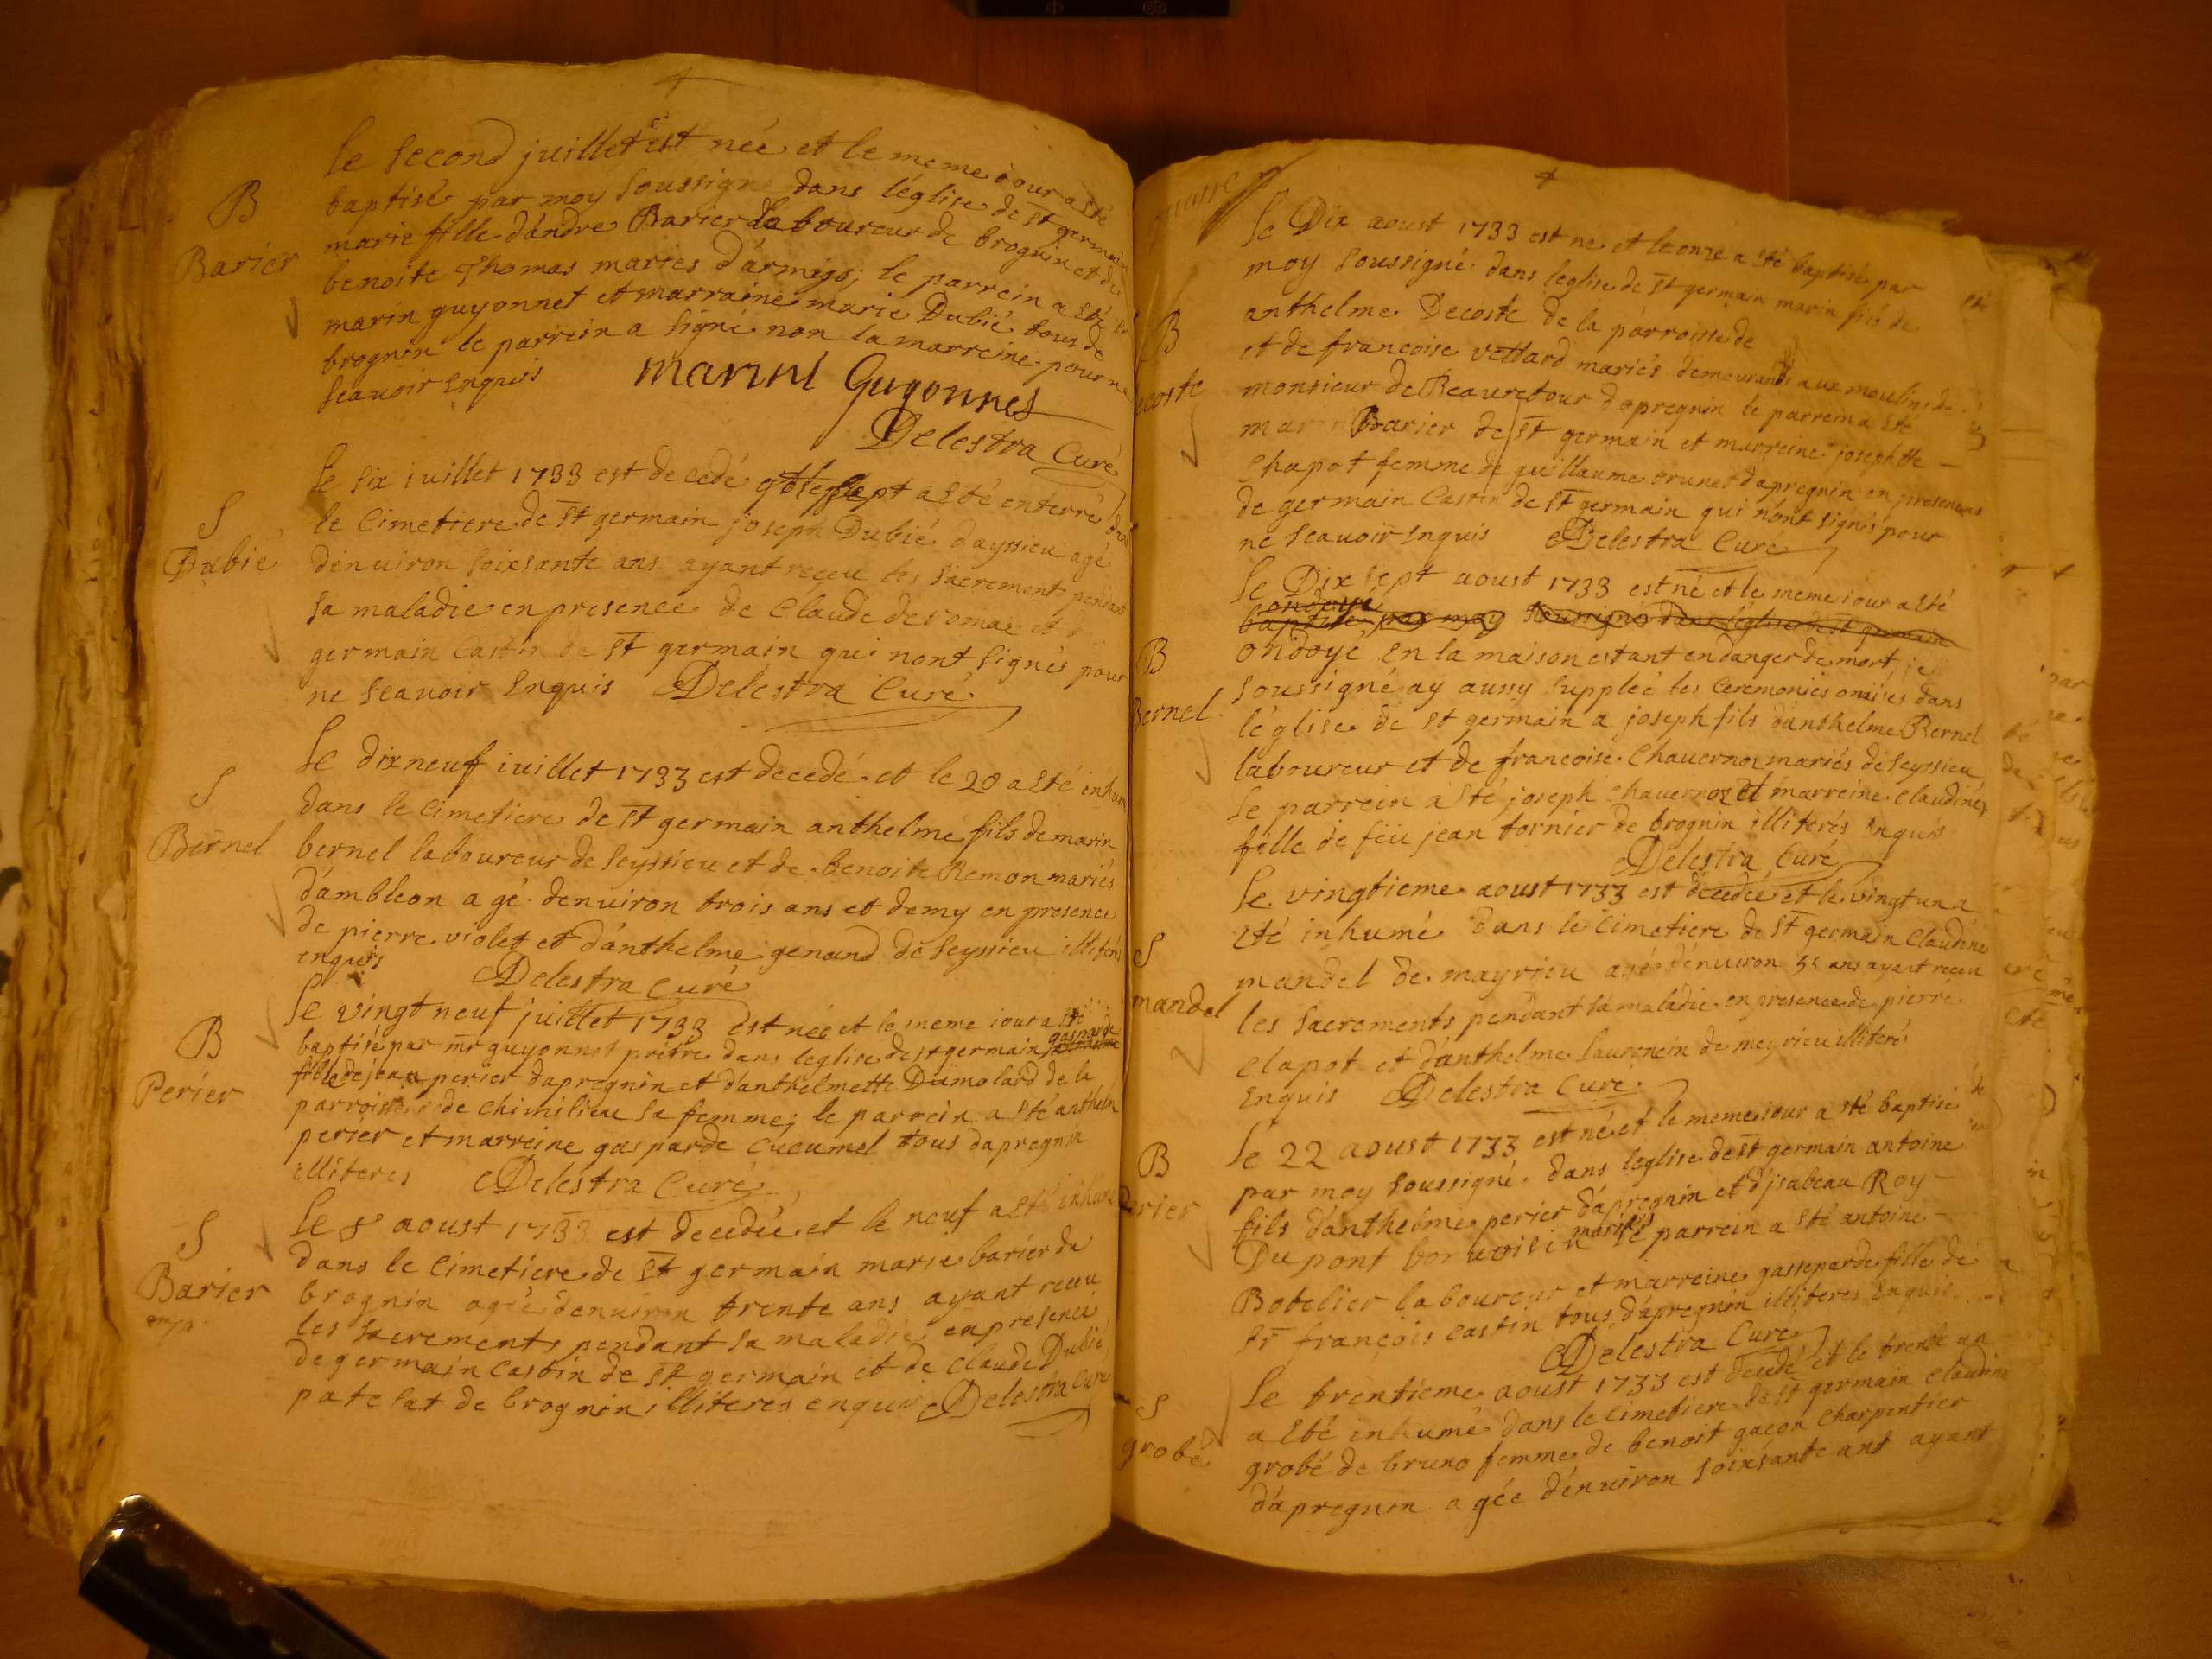 le second juillet est née et le meme iour a sté
B
baptisé par moy soussigné dans léglise de st germain
Barier
marie fille dandré Barier laboureur de brognin et de
benoite Thomas mariés d'armiss; le parrein a sté sr
marin guyonnet et marraine marie Dubié tous de
brognin le parrein a signé non la marreine pour ne
scauoir enquis
marini Guyonnet
Delestra Curé
le six iuillet 1733 est decedé et le sept a sté enterré dans
S
Dubié
le cimetiere de st germain joseph Dubié dayssieu agé
denuiron soixsante ans ayant receu les sacrements pendant
sa maladie en presence de Claude de romae et
germain Castin de st germain qui nont signés pour
ne scauoir enquis Delestra Curé
le dixneuf iuillet 1733 est decedé et le 20 a sté inhumé
S
Bernel
dans le cimetiere de st germain anthelme fils de marin
bernel laboureur de seyssieu et de benoite Remon mariés
d'ambleon agé denuiron trois ans et demy en presence
de pierre violet et d'anthelme genand de seyssieu illiterés
enquis Delestra curé
le vingt neuf juillet 1733 est née et le meme iour a sté
B
Perier
gasparde
baptisé par mr guyonnet prêtre dans leglise de st germain
fille de jean perier dapregnin et danthelmette Dumolard de la
parroisse de chimilieu sa femme; le parrein a sté anthelm
perier et marreine gasparde cucumel tous dapregnin
illiteres Delestra Curé
le 8 aoust 1733 est decedée et le neuf a sté inhumé
S
Barier
dans le cimetiere de st germain marie barier de
brognin agée denuiron trente ans ayant receu
les sacrements pendant sa maladie en presence
de germain castin de st germain et de claude Dubié
patelat de brognin illiteres enquis Delestra Curé
le Dix aoust 1733 est né et le onze a sté baptisé par
moy soussigné dans leglise de st germain marin fils de
B
coste
anthelme Decoste de la parroisse de
et de francoise vettard mariés demeurant aux moulins de
monsieur de Beauretour dapregnin le parrein a sté
marin Barier de st germain et marreine josephtte
Chapot femme de guillaume brunet dapregnin en presence
de germain Castin de st germain qui n'ont signés pour
ne scauoir enquis Delestra Curé
le Dix sept aoust 1733 est né et le meme iour a sté
ondoyé
baptisé par moy soussigné dans léglise de st germain
B
Bernel
ondoyé en la maison estant en danger de mort je
soussigné ay aussy suppleé les ceremonies omises dans
léglise de st germain a joseph fils danthelme Bernel
laboureur et de francoise Chauerno mariés de seyssieu
le parrein a sté joseph chauerrot et marreine claudine
fille de feü jean tornier de brognin illiterés enquis
Delestra Curé
le vingtieme aoust 1733 est decedée et le vingt un a
S
mandel
sté inhumé dans le cimetiere de st germain claudine
mandel de mayrieu agée dénuiron 55 ans ayant receu
les sacrements pendant sa maladie en presence de pierre
clapot et d'anthelme laurencin de meyrieu illiterés
Enquis Delestra Curé
le 22 aoust 1733 est né et le meme iour a sté baptisé
B
perier
par moy soussigné dans leglise de st germain antoine
fils danthelme perier dapregnin et d'jsabeau Roy
mariés
Du pont le parrein a sté antoine
Botelier laboureur et marreine gasseparde fille de
sr françois castin tous dapregnin illiteres enquis
Delestra Curé
le trentieme aoust 1733 est decedé et le trente un
S
grobé
a sté inhumé dans le cimetiere de st germain claudine
grobé de bruno femme de benoit gacon charpentier
dapregnin agée dénuiron soixsante ans ayant